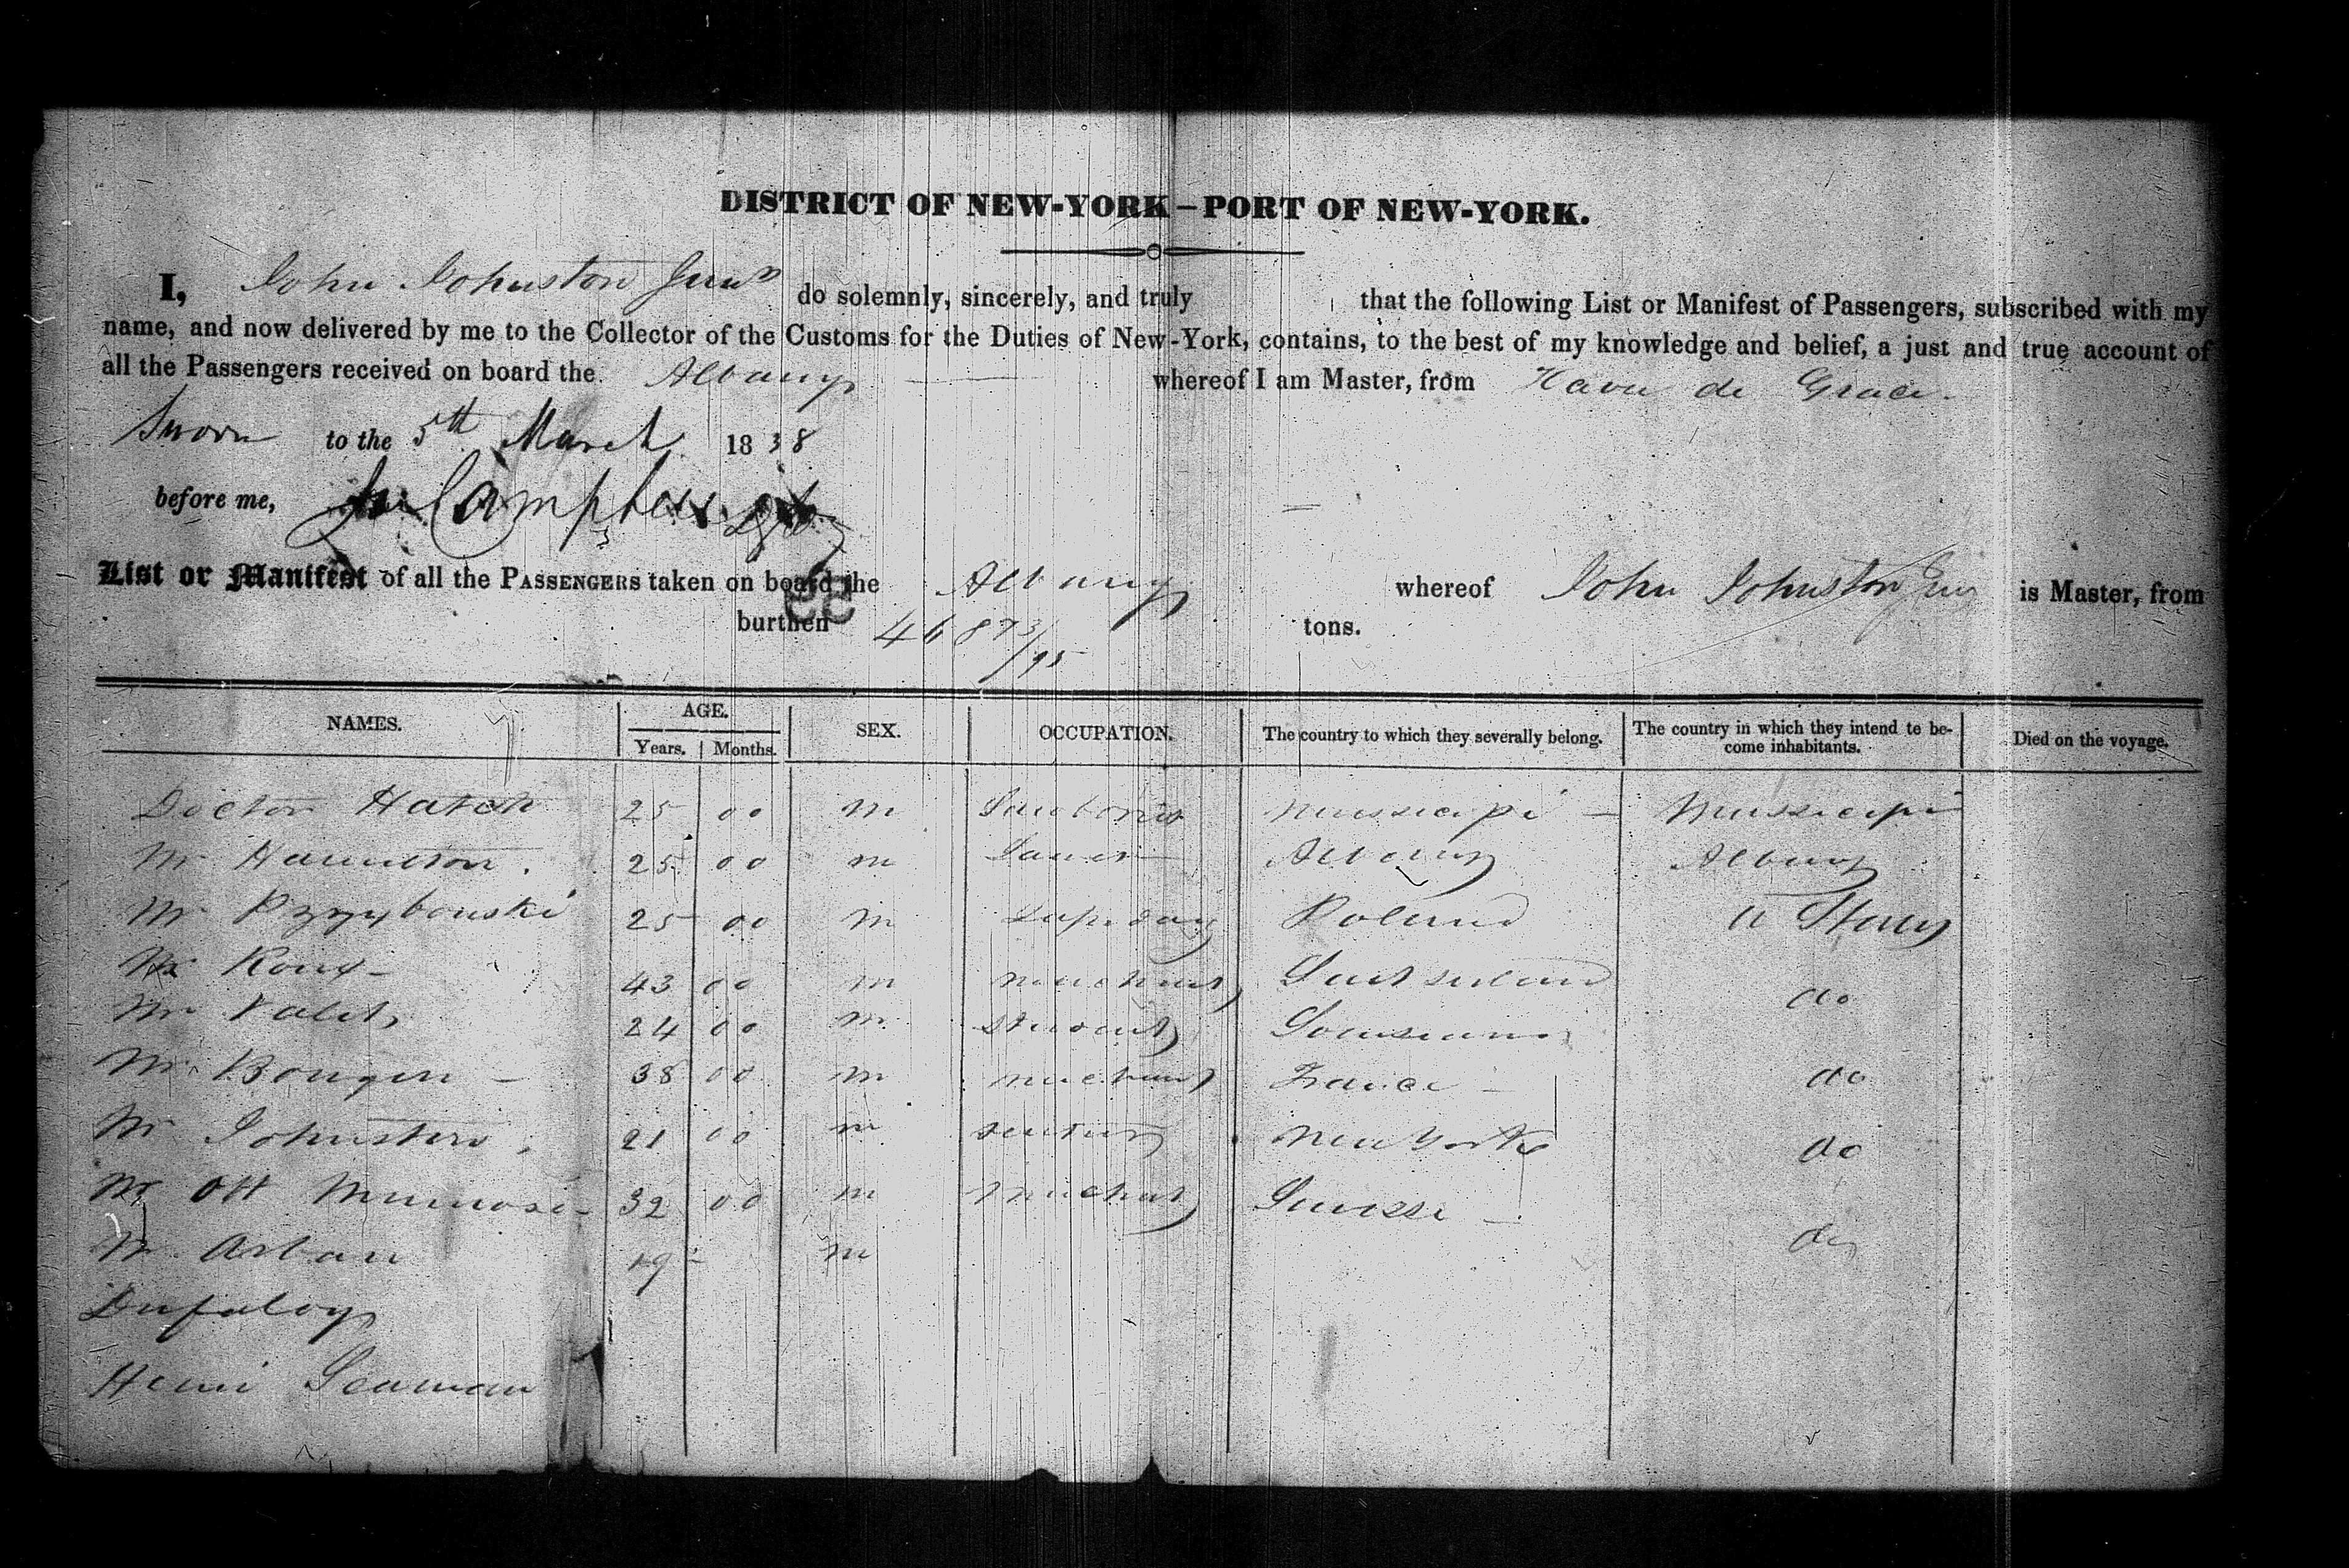 DISTRICT OF NEW-YORK – PORT OF NEW-YORK.
I, John Johnston Junr do solemnly, sincerely, and truly that the following List or Manifest of Passengers, subscribed with my
name, and now delivered by me to the Collector of the Customs for the Duties of New-York, contains, to the best of my knowledge and belief, a just and true account of
all the Passengers received on board the Albany whereof I am Master, from Havre de Grace.
Sworn to the 5th March 1838
before me, Campbell
List or Manifest of all the PASSENGERS taken on board the Albany whereof John Johnston Junr is Master, from
burthen 468 73/95 tons.
NAMES. AGE. SEX. OCCUPATION. The country to which they severally belong. The country in which they intend to be-come inhabitants. Died on the voyage.
Years. Months.
Doctor Hatch 25 00 m Mississipi Mississipi
Mr Hamilton. 25 00 m Albany Albany
Mr Pzyzybouski 25 00 m Poland U States
Mr Roux 43 00 m merchant
Mr Valet 24 00 m student Louisiana do
Mr Bougen 38 00 m merchant France do
Mr Johnston 21 00 m New York do
Mr Ott 32 00 m merchant Suisse do
Mr Arban 19 m
Dufaloy
Henri Seaman